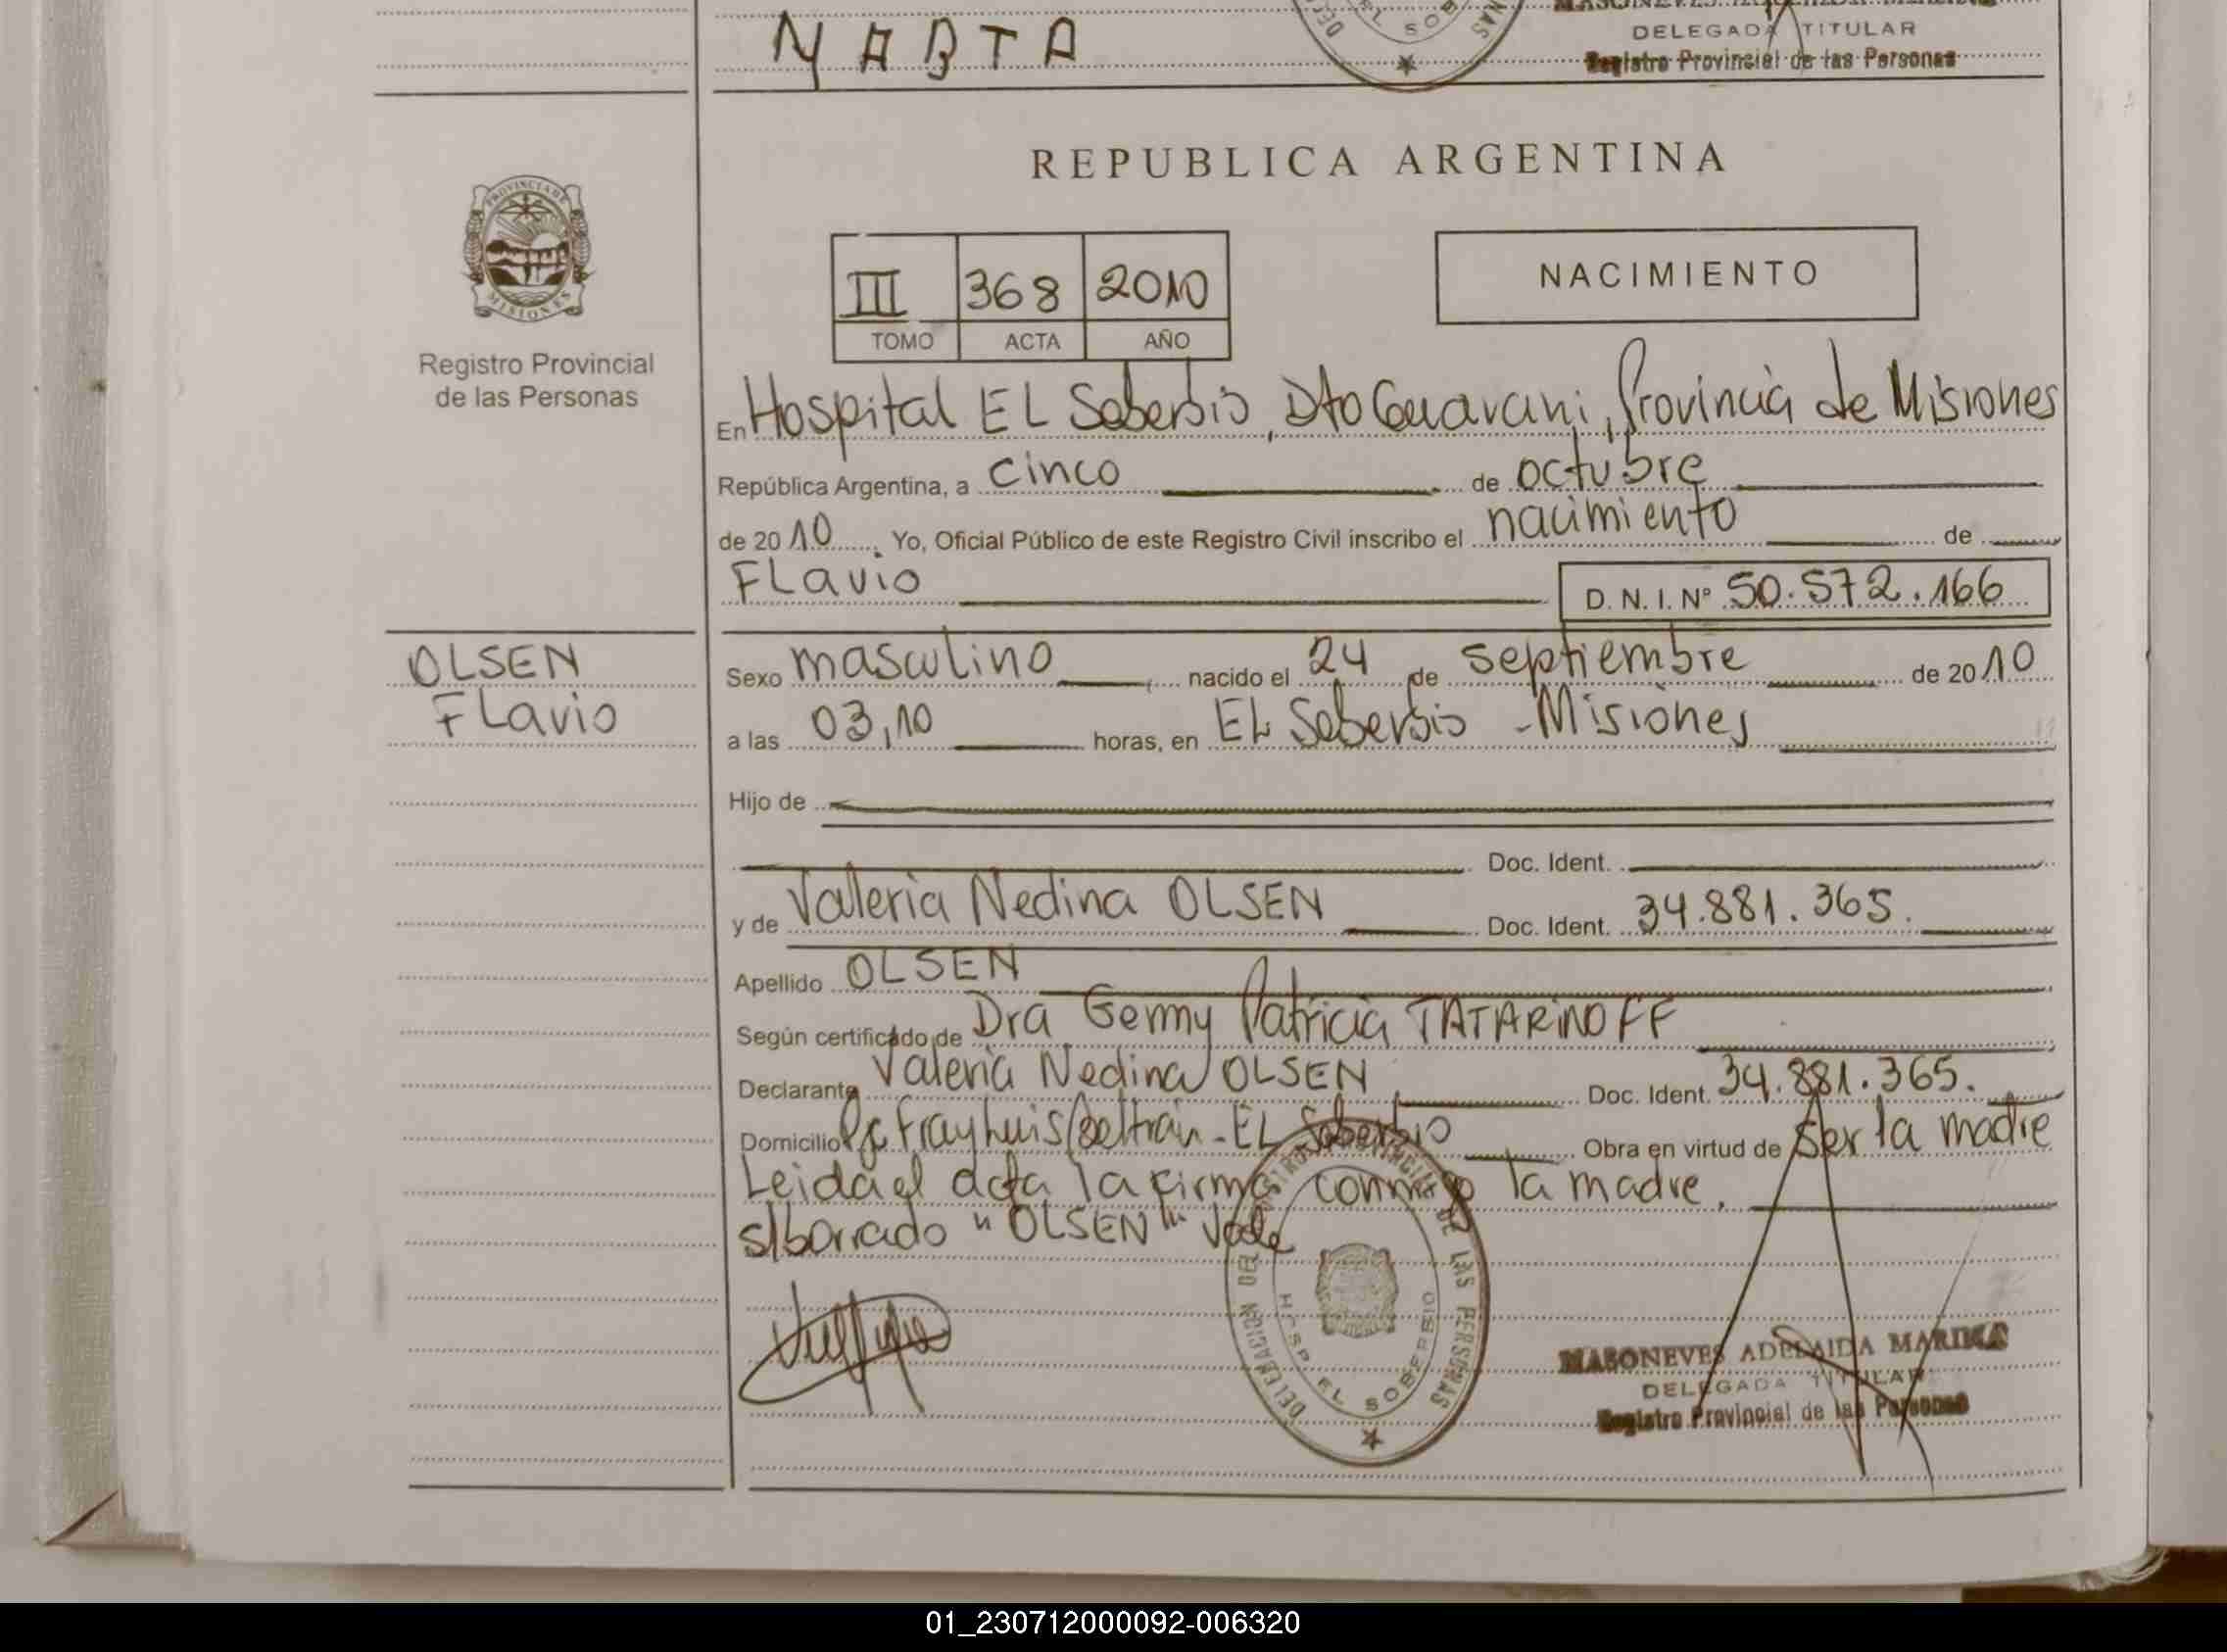 NARTA
DELEGADA TITULAR
Registro Provincial de las Personas
REPUBLICA ARGENTINA
PROVINCIA DE
MISIONES
Registro Provincial
de las Personas
III 368 2010
TOMO ACTA AÑO
NACIMIENTO
En Hospital EL Soberbio, Dto Guarani, Provincia de Misiones
República Argentina, a cinco de octubre
de 2010, Yo, Oficial Público de este Registro Civil inscribo el nacimiento de
FLavio D. N. I. Nº 50.572.166
OLSEN
FLavio
Sexo masculino, nacido el 24 de septiembre de 2010
a las 03,10 horas, en EL Soberbio - Misiones
Hijo de
Doc. Ident.
y de Valeria Nedina OLSEN Doc. Ident. 34.881.365.
Apellido OLSEN
Según certificado de Dra Genny Patricia TATARINOFF
Declarante Valeria Nedina OLSEN Doc. Ident. 34.881.365.
Domicilio Fray Luis Beltran - EL Soberbio Obra en virtud de ser la madre
Leida el acta la firma conmigo la madre.
s/borrado "OLSEN" Vale
DELEGACION DEL REGISTRO PROVINCIAL DE LAS PERSONAS
HOSP. EL SOBERBIO
MASONEVES ADELAIDA
DELEGADA TITULAR
Registro Provincial de las Personas
01_230712000092-006320